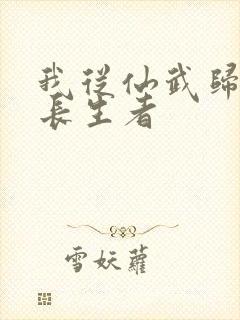 我從仙武歸
長生者
雪妖蘿